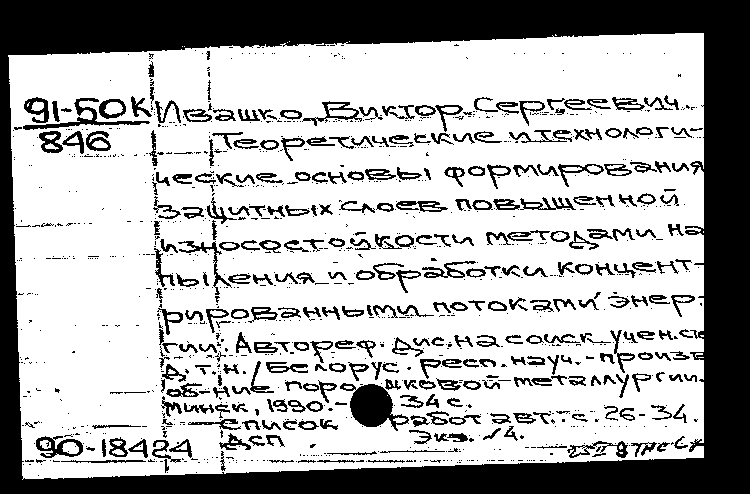 91-50К Ивашко, Виктор Сергеевич.
846 Теоретические и технологи-
ческие основы формирования
защитных слоев повышенной
износостойкости методами на
пыления и обработки концент-
рированными потоками энер-
гии: Автореф. дис. на соиск учен. сте
д.т.н./Белорус. респ. науч.-произв
об-ние порошковой металлургии.
Минск, 1990.- 34 с.
Список работ авт.: с. 26-34.
ДСП Экз. №4.
90-18424